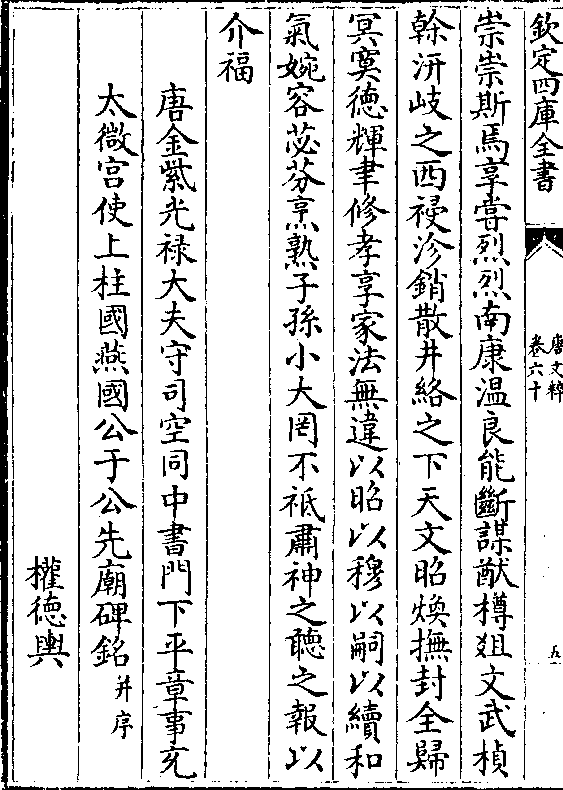 欽定四庫全書
唐文粹
卷六十
五
崇崇斯焉享嘗烈烈南康温良能斷謀猷樽俎文武楨
榦汧岐之西祲沴銷散井絡之下天文昭煥撫封全歸
冥寞德輝聿修孝享家法無違以昭以穆以嗣以續和
氣婉容苾芬烹熟子孫小大罔不祗肅神之聽之報以
介福
唐金紫光禄大夫守司空同中書門下平章事充
太微宫使上柱國燕國公于公先廟碑銘并序
權德輿